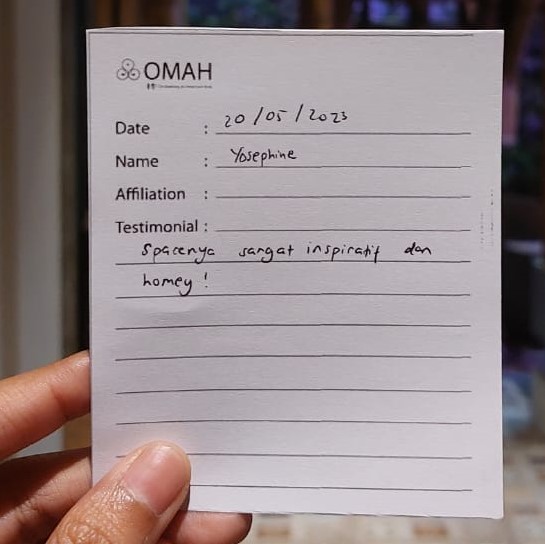 OMAH
Date : 20/05/2023
Name : Yosephine
Affiliation :
Testimonial :
Spacenya sangat inspiratif dan
homey !